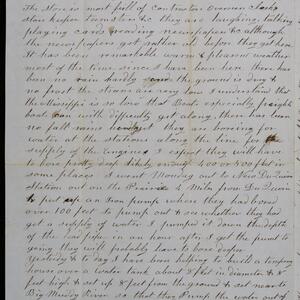 The Store is most full of Contractors Overseers Clerks
store keeper Teamsters & they are laughing, talking
playing card reading newspapers & although
the newspapers get rather old before they get here
It has been remarkable warm & pleasant weather
most of the time since I have been here there has
been no rain hardly and the ground is dry &
no frost the streams are very low I understand that
the Mississippi is so low that Boats especially freight
boat can with difficulty get along, there has been
no fall rains here yet they are boreing for
water at the stations along the line for the
supply of the Engines I expect they will have
to bore pretty deep likely enough 400 or 500 feet in
some places I went Monday out to New Du Quoin
Station out on the Prairie 4 Mile from Du Quoin
to put up an Iron pump where they had bored
over 100 feet to pump out & see whether they had
got a supply of water, I pumped it down the depth
of the sud pipe in an hour after I got the pump to
going they will probably have to bore deeper
Yesterday & to day I have been helping to built a tempory
house over a water tank about 8 feet in diameter & 8
feet high & set up 8 feet from the ground & set near
Big Muddy River so that they pump the water out of